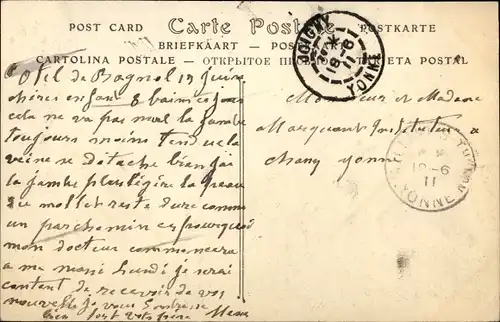 POST CARD Carte Postale POSTKARTE
BRIEFKAART — POS
CARTOLINA POSTALE — ОТКРЫТОЕ TARJETA POSTAL
JOIGNY
18-6
11
YONNE
Otel de Bagnol 17 juin
chères enfant 8 bains
cela ne va pas mal la jambe
toujours moins tendue la
veine se détache bien j'ai
la jambe plus légère la peau
du mollet reste dure comme
un parchemin
mon docteur commencera
a me lundi je serai
contant de recevoir de vos
nouvelle je vous embrasse
bien fort votre père
Monsieur et Madame
Marquant Instituteur a
Champ yonne
18-6
11
YONNE